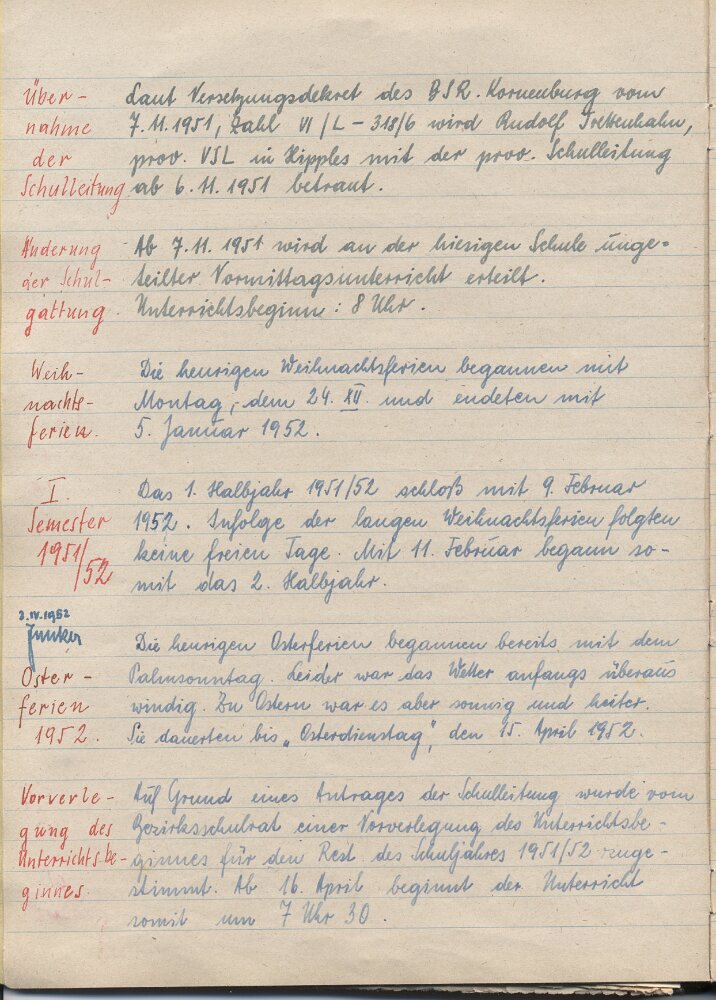 Über-
nahme
der
Schulleitung
Laut Versetzungsdekret des BSR. Korneuburg vom
7.11.1951, Zahl VI/L-318/6 wird Rudolf Trettenhahn,
prov. VSL in Hipples mit der prov. Schulleitung
ab 6.11.1951 betraut.
Änderung
der Schul-
gattung.
Ab 7.11.1951 wird an der hiesigen Schule unge-
teilter Vormittagsunterricht erteilt.
Unterrichtsbeginn: 8 Uhr.
Weih-
nachts-
ferien.
Die heurigen Weihnachtsferien begannen mit
Montag, dem 24. XII. und endeten mit
5. Januar 1952.
I.
Semester
1951/
52
Das 1. Halbjahr 1951/52 schloß mit 9. Februar
1952. Infolge der langen Weihnachtsferien folgten
keine freien Tage. Mit 11. Februar begann so-
mit das 2. Halbjahr.
3.IV.1952
Junker
Oster-
ferien
1952.
Die heurigen Osterferien begannen bereits mit dem
Palmsonntag. Leider war das Wetter anfangs überaus
windig. Zu Ostern war es aber sonnig und heiter.
Sie dauerten bis „Osterdienstag", den 15. April 1952.
Vorverle-
gung des
Unterrichtsbe-
ginnes.
Auf Grund eines Antrages der Schulleitung wurde vom
Bezirksschulrat einer Vorverlegung des Unterrichtsbe-
ginnes für den Rest des Schuljahres 1951/52 zuge-
stimmt. Ab 16. April beginnt der Unterricht
somit um 7 Uhr 30.